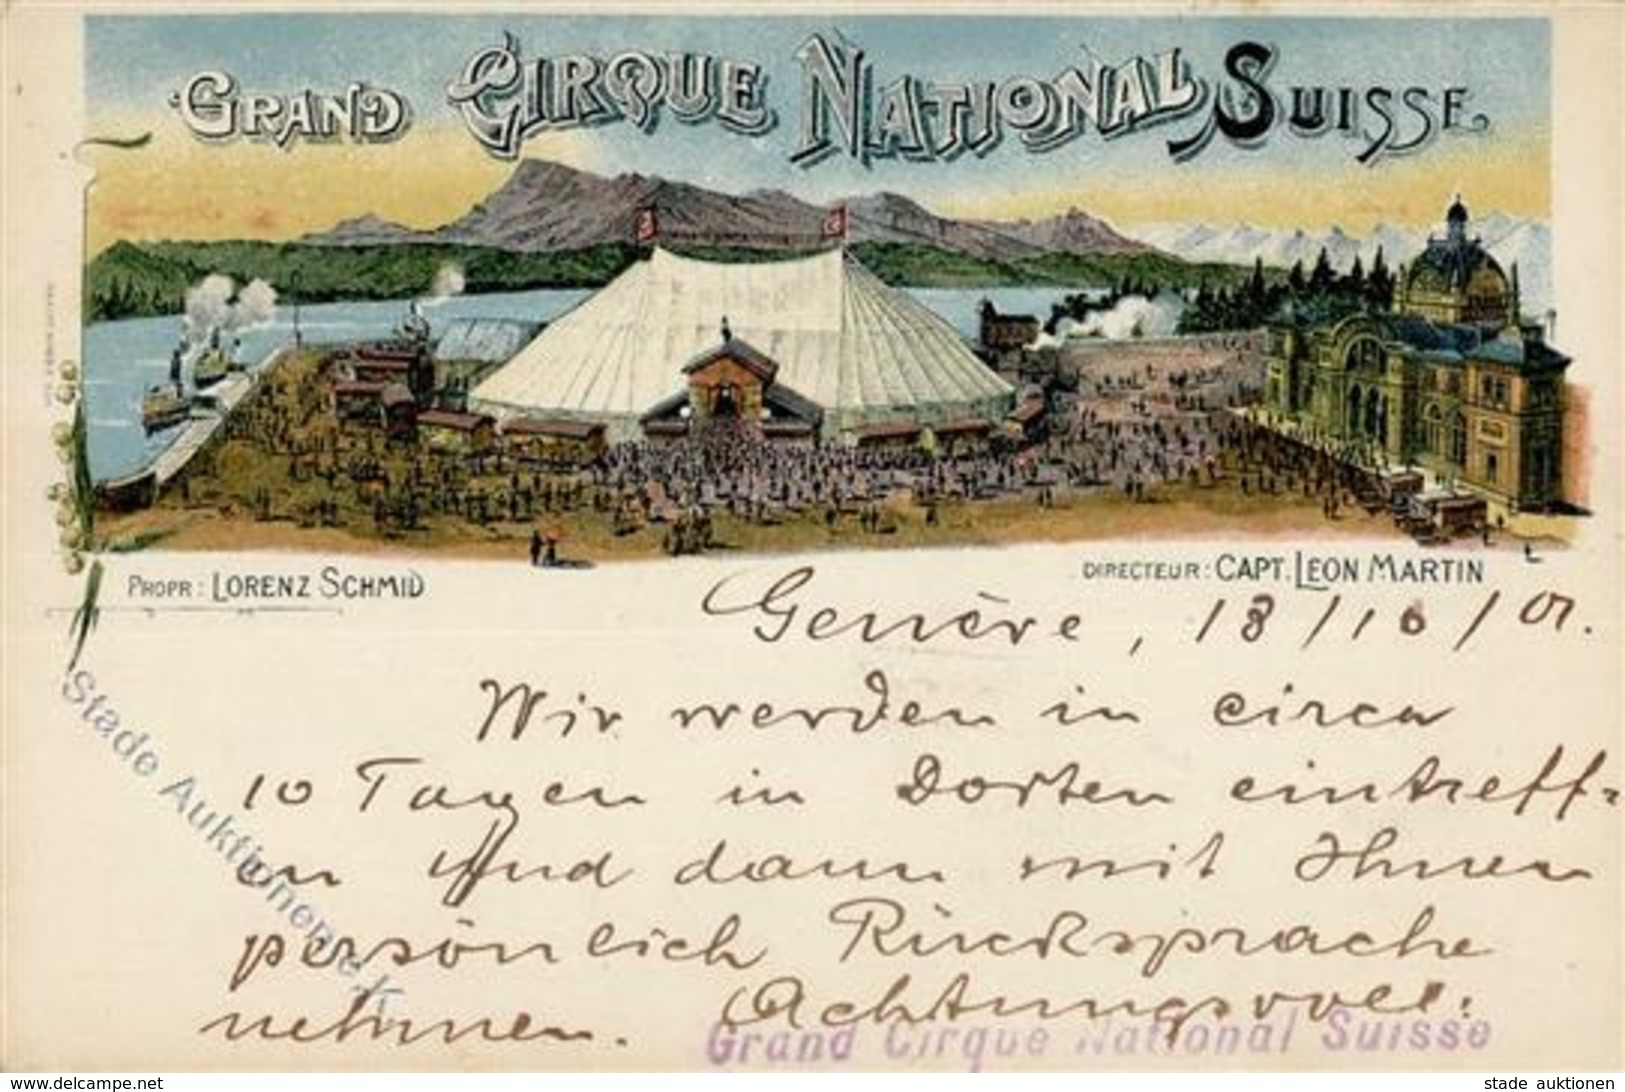 GRAND CIRQUE NATIONAL SUISSE
PROPR: LORENZ SCHMID
DIRECTEUR: CAPT. LEON MARTIN
Genève, 18/10/01.
Wir werden in circa
10 Tagen in Dorten eintreff-
en und dann mit Ihnen
persönlich Rücksprache
nehmen. Achtungsvoll:
Grand Cirque National Suisse
Stade Auktionen
www.delcampe.net
stade auktionen